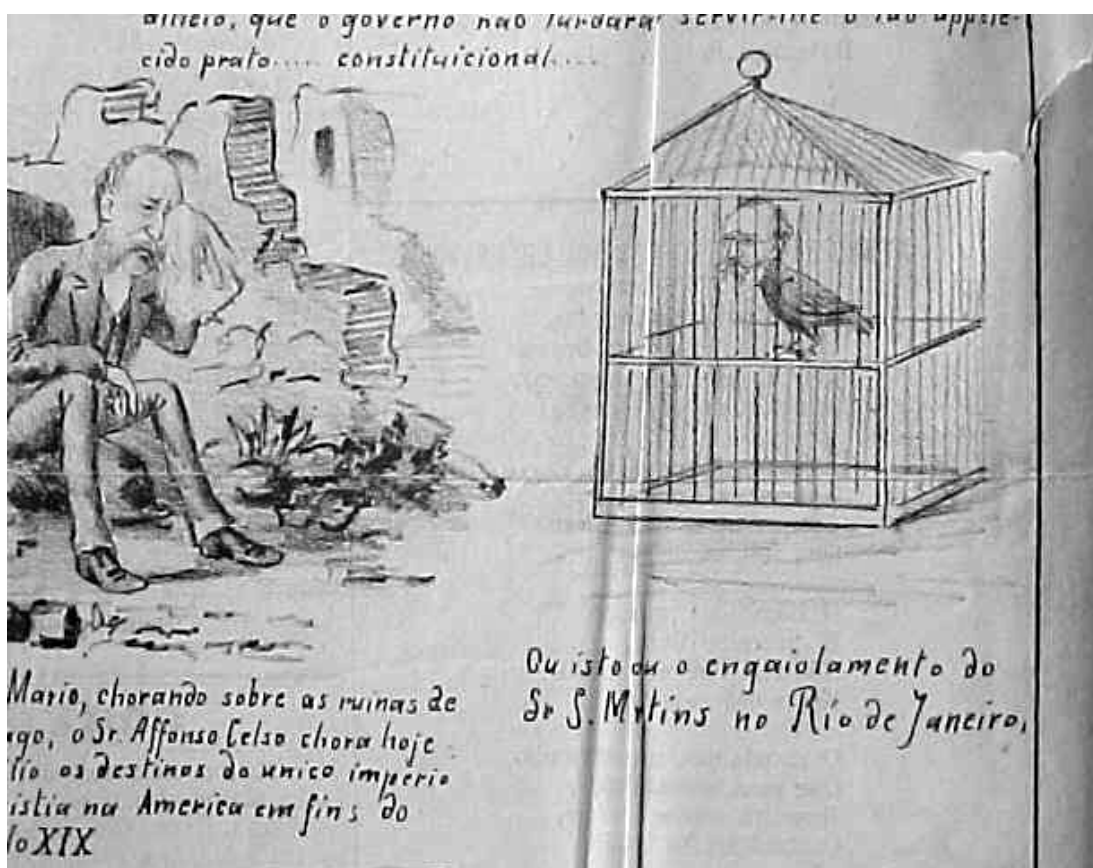 que o governo não tardará servir-lhe o tão appete-
cido prato..... constituicional.....
Mario, chorando sobre as ruinas de
ago, o Sr. Affonso Celso chora hoje
lio os destinos do unico imperio
istia na America em fins do
lo XIX
Ou isto ou o engaiolamento do
Sr S. Mrtins no Rio de Janeiro,